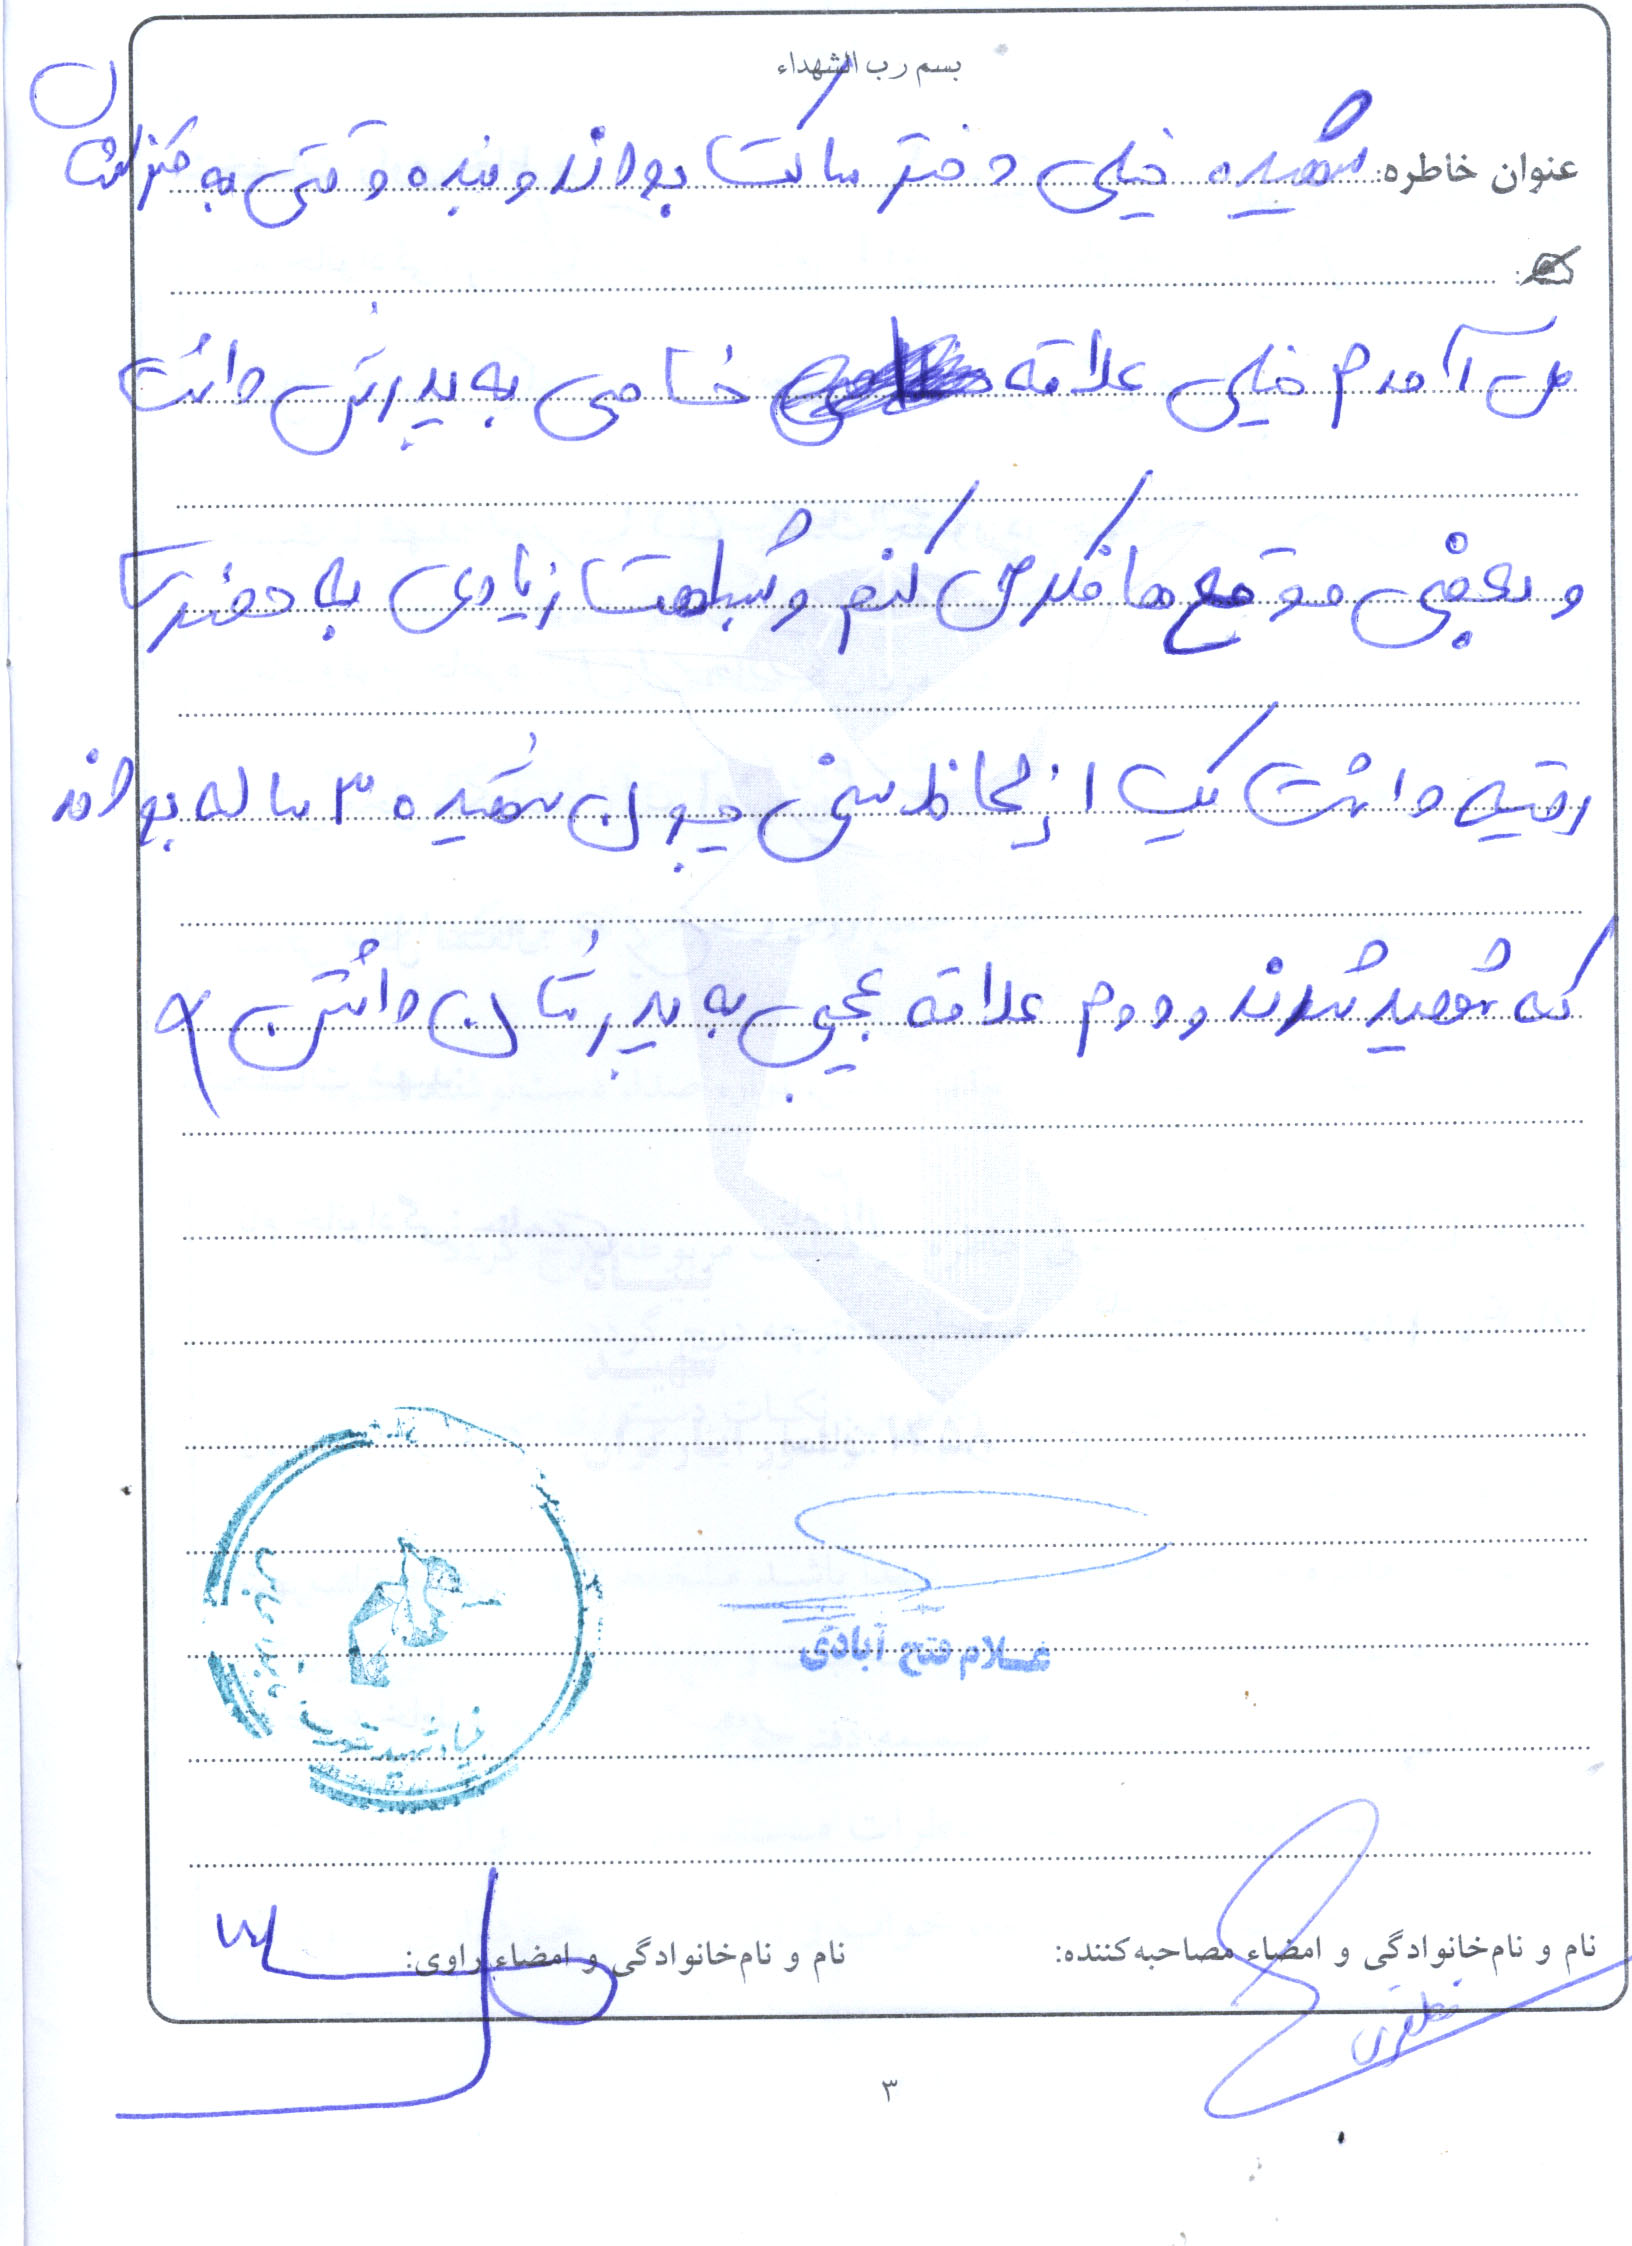 بسم رب الشهداء
عنوان خاطره: شهیده خیلی دختر ساکت بودند و بنده وقتی به منزلشان
می آمدم خیلی علاقه خاصی به پدرش داشت
و بعضی موقع ها فکر می کنم و شباهت زیادی به حضرت
رقیه داشت یک از لحاظ سنی چون شهیده ۳ ساله بودند
که شهید شدند و دوم علاقه عجیبی به پدرشان داشتن
غلام فتح آبادی
نام و نام‌خانوادگی و امضاء مصاحبه‌کننده:
نام و نام‌خانوادگی و امضاء راوی:
۳